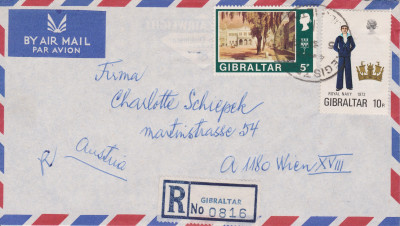 BY AIR MAIL
PAR AVION
GIBRALTAR
5p
ROYAL NAVY 1973
GIBRALTAR 10p
Firma
Charlotte Schiepek
Martinstrasse 54
A 1180 Wien XVIII
Austria
R
GIBRALTAR
No 0816